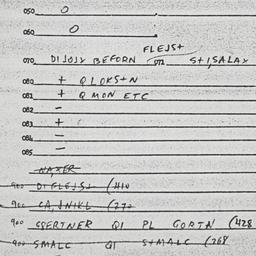 050 O
060 O
FLEJS+
070 DIJOJX BEFORN 072 S+1,SALAX
080 + QLOKS+N
081 + QMON ETC
082 -
083 +
084 -
085 -
NAXER
900 DIFLEJS+ (#10
900 CA,JNIKL (272
900 GSERTNER QI PL GORTN (428
900 SMALC QI S+MALC (268